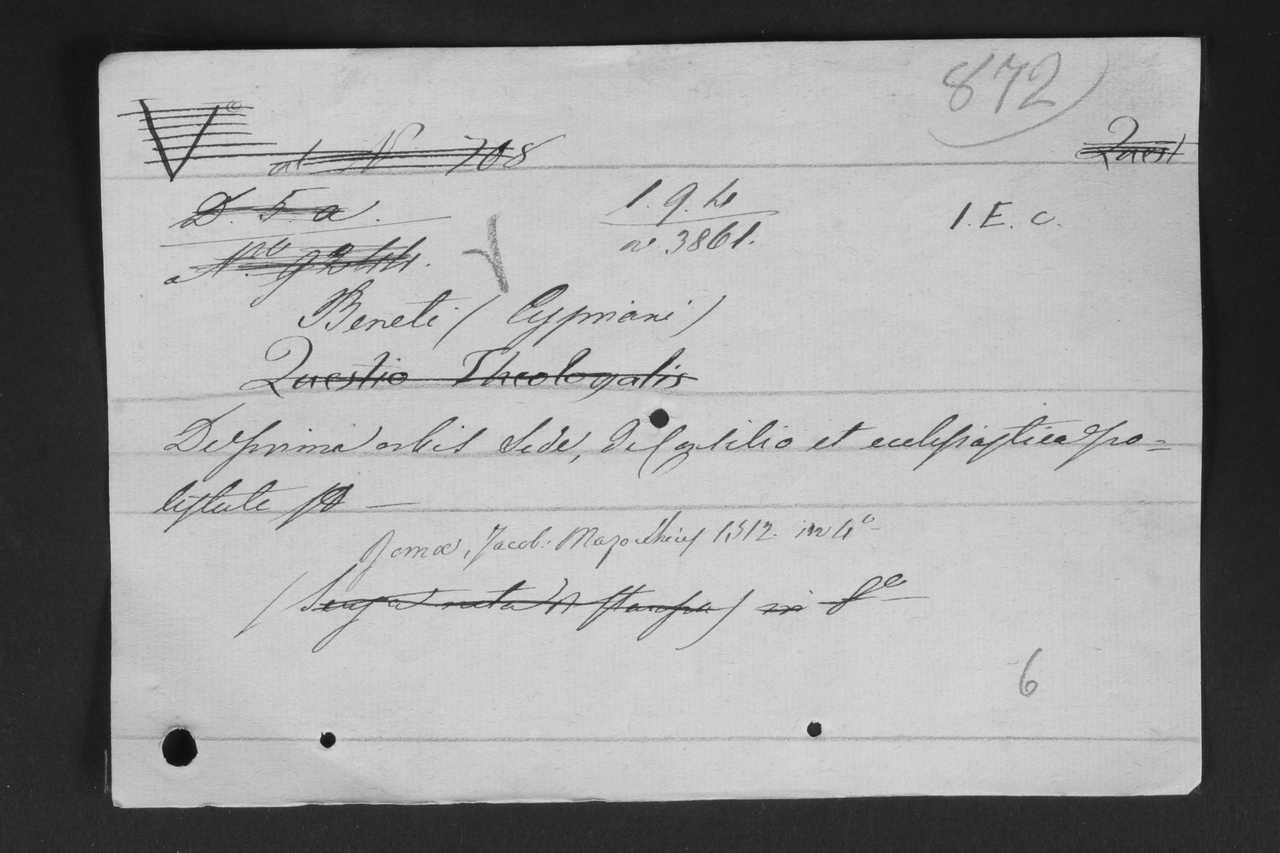 872
V
al N 708
Quest
D. 5 a.
1. 9. 4
1. E. C.
a N.ro 9244.
a 3861.
Beneti (Cypriani)
Quaestio Theologalis
De prima orbis Sede, de Conlilio et ecclesiastica po=
testate
Romæ, Jacob: Mazochius 1512. in 4°
(Senza nota di Stampa) in 8°
6